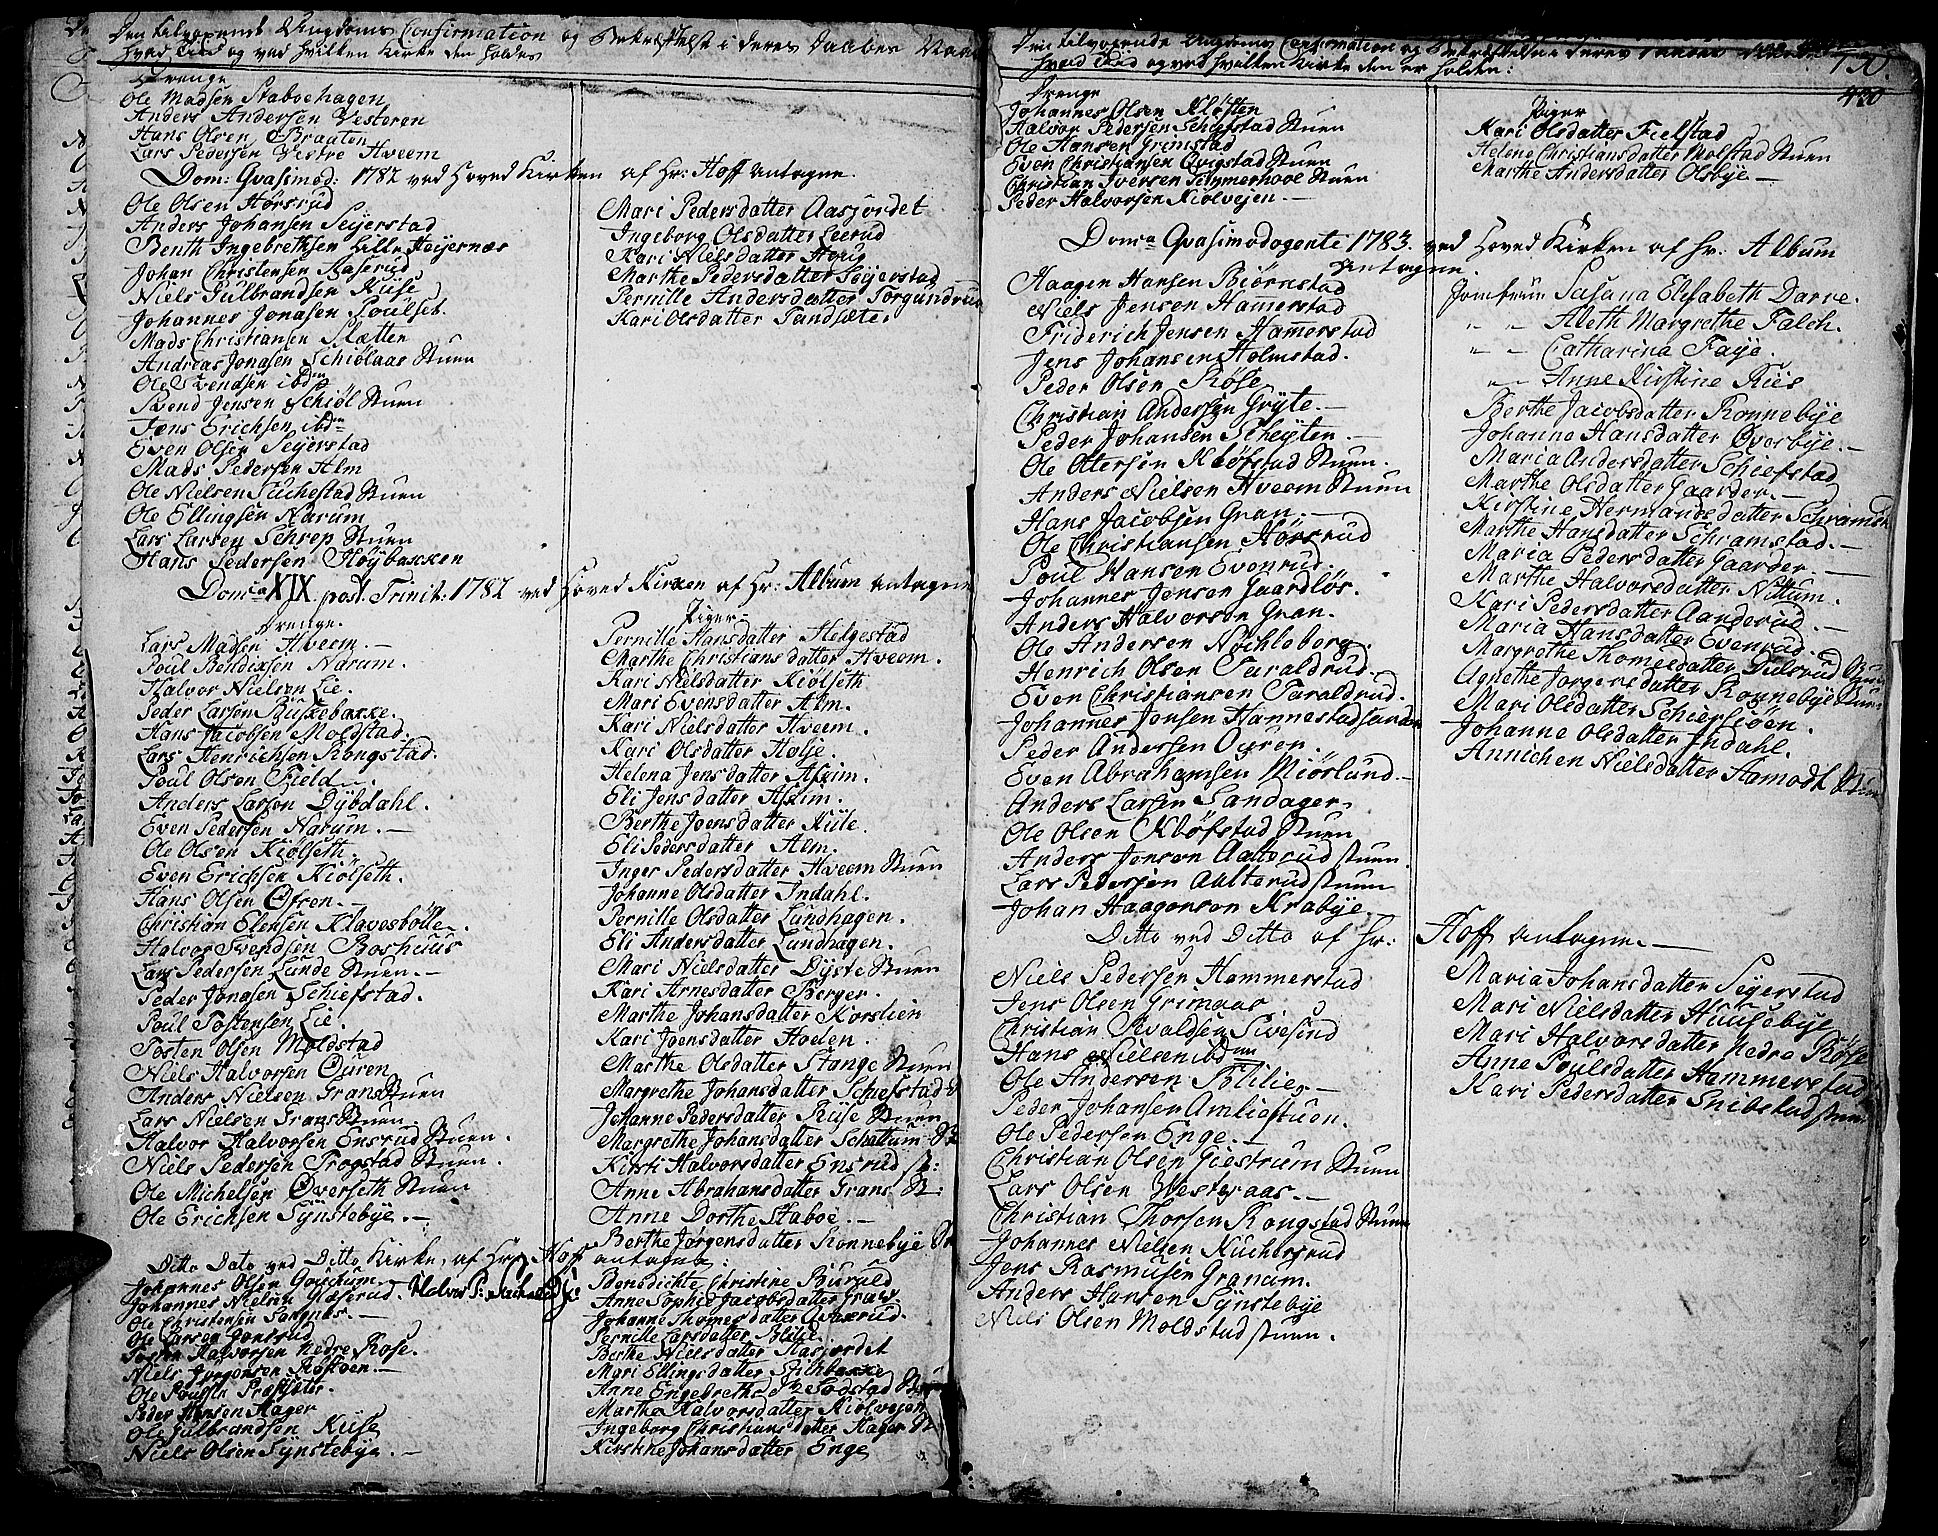 Den tilvoxende Ungdoms Confirmation og Bekræftelse i deres Daabes
hvad Tiid og ved hvilken Kirke den holdes
Drenge
Ole Madsen Staboehagen
Anders Andersen Vesteren
Hans Olsen Braaten
Lars Pedersen Vestre Hveem
Dom: Qvasimod: 1782 ved Hoved Kirken af Hr: Hoff antagne.
Ole Olsen Horsrud
Anders Johansen Seijerstad
Benth Ingebrethsen Lille Heijernæs
Johan Christensen Aaserud
Niels Gulbrandsen Kiise
Johannes Jonasen Poulset.
Mads Christiansen Slætten
Andreas Jonasen Schiölaas Stuen
Ole Svendsen ibdm
Svend Jensen Schiöl Stuen
Jens Erichsen ibdm
Even Olsen Seijerstad
Mads Pedersen Alm
Ole Nielsen Suchestad Stuen
Ole Ellingsen Narum
Lars Larsen Schrep Stuen
Hans Pedersen Höybakken
Mari Pedersdatter Aasjordet
Ingeborg Olsdatter Leerud
Kari Nielsdatter Houg
Marthe Pedersdatter Seijerstad
Pernille Andersdatter Torgundrud
Kari Olsdatter Sandsæter
Domca XIX post Trinit: 1782 ved Hoved Kirken af Hr: Album antagne
Drenge.
Lars Madsen Hveem.
Poul Bendixsen Narum.
Halvor Nielsen Lie.
Peder Larsen Buskebakke.
Hans Jacobsen Moldstad.
Lars Henrichsen Kongstad.
Poul Olsen Field
Anders Larsen Dybdahl.
Even Pedersen Narum.
Ole Olsen Kiölseth
Even Erichsen Kiölseth.
Hans Olsen Ofren.
Christian Elensen Klavesbölle.
Halvor Svendsen Boshuus
Lars Pedersen Lunde Stuen.
Peder Jonasen Schiefstad.
Poul Tostensen Lie.
Tosten Olsen Moldstad
Niels Halvorsen Ouren
Anders Nielsen Grans Stuen
Lars Nielsen Grans Stuen.
Halvor Halvorsen Ensrud Stuen.
Niels Pedersen Progstad Stuen.
Ole Michelsen Overseth Stuen
Ole Erichsen Synstebye.
Piger
Pernille Hansdatter Helgestad
Marthe Christiansdatter Hveem.
Kari Nielsdatter Kiölseth
Mari Evensdatter Alm.
Kari Nielsdatter Hveem.
Kari Olsdatter Holje.
Helena Jensdatter Askim.
Eli Jensdatter Askim.
Berthe Joensdatter Kiile.
Eli Pedersdatter Alm.
Inger Pedersdatter Hveem Stuen
Johanne Olsdatter Indahl.
Pernille Olsdatter Lundhagen.
Eli Andersdatter Lundhagen.
Mari Nielsdatter Dyste Stuen
Kari Arnesdatter Berger.
Marthe Johansdatter Korstien
Kari Joensdatter Hoelen.
Marthe Olsdatter Stange Stuen
Margrethe Johansdatter Schiefstad
Johanne Pedersdatter Rise Stuen
Margrethe Johansdatter Schattum
Kirsti Halvorsdatter Ensrud St:
Anne Abrahansdatter Grans St:
Anne Dorthe Staboe.
Berthe Jörgensdatter Ronnebye St
Ditto Dato ved Ditto Kirke, af Hr: Hoff antagne:
Johannes Olsen Gouchum.
Johannes Nielsen Næserud. Halvor P:
Ole Christensen Sangnæs.
Ole Larsen Gonsrud
Tosten Halvorsen Nedre Rose.
Niels Jörgensen Röstoen.
Ole Poulsen Præstsæter.
Peder Hansen Hager
Ole Gulbrandsen Kiise
Niels Olsen Synstebye.
Bensdichte Christine Buruld
Anne Sophie Jacobsdatter Gran
Johanne Thomesdatter Qvarud.
Pernille Larsdatter Blilie.
Berthe Nielsdatter Aasjordet
Mari Ellingsdatter Stikbakke
Anne Engebrethsdtr Sodstad
Marthe Halvorsdatter Kiolvejen
Ingeborg Christiansdatter Hager St
Kirstine Johansdatter Enge
Den tilvoxende Ungdoms Confirmation og Bekræftelse i deres Daabes
hvad Tiid og ved hvilken Kirke den er holden:
130
Drenge
Johannes Olsen Kloften
Halvor Pedersen Schiefstad Stuen
Ole Hansen Grimstad
Even Christiansen Qvigstad Stuen
Christian Iversen Sommerhoel Stuen
Peder Halvorsen Kiolvejen.
Piger
Kari Olsdatter Fielstad
Helene Christiansdatter Molstad Stuen
Marthe Andersdatter Olsbye
Domca Qvasimodogeniti 1783. ved Hoved Kirken af Hr: Album
antagne.
Haagen Hansen Biörnstad
Niels Jensen Hamerstad
Friderich Jensen Hamerstad
Jens Johansen Holmstad.
Peder Olsen Röse
Christian Andersen Gryte.
Peder Johansen Scheyten.
Ole Otersen Klöfstad Stuen.
Anders Nielsen Hveem Stuen
Hans Jacobsen Gran.
Ole Christiansen Hörsrud
Poul Hansen Evenrud.
Johannes Jensen Gaardlös.
Anders Halvorsen Gran.
Ole Andersen Nöchleborg.
Henrich Olsen Taraldrud.
Even Christiansen Taraldrud.
Johannes Jensen Hannestadsanden
Peder Andersen Ouren.
Even Abrahamsen Miörlund.
Anders Larsen Sandager.
Ole Olsen Klöfstad Stuen
Anders Jensen Aalterud stuen.
Lars Pedersen Aalterud stuen
Johan Haagensen Krabye.
Jomfrue Susana Elisabeth Darre.
" " Aleth Margrethe Falch.
" " Catharina Faye.
" " Anne Kirstine Riis
Berthe Jacobsdatter Ronnebye
Johanne Hansdatter Overbye.
Maria Andersdatter Schiefstad
Marthe Olsdatter Gaarder.
Kirstine Hermandsdatter Schramst
Marthe Hansdatter Schramstad.
Maria Pedersdatter Gaarder.
Marthe Halvorsdatter Nottum.
Kari Pedersdatter Aanderud.
Maria Hansdatter Evenrud.
Margrethe Thomesdatter Dulsrud
Agnethe Jorgensdatter Ronnebye Stuen
Mari Olsdatter Schiersiöen.
Johanne Olsdatter Indahl.
Annichen Nielsdatter Aamodt
Ditto ved Ditto af Hr: Hoff antagne.
Niels Pedersen Hammerstad
Jens Olsen Grimaas
Christian Sivaldsen Sivesind
Hans Nielsen ibdm
Ole Andersen Polilie
Peder Johansen Amliestuen.
Ole Pedersen Enge.
Christian Olsen Giestrum Stuen
Lars Olsen Westeraas.
Christian Thorsen Kongstad Stuen
Johannes Nielsen Kuchersrud
Jens Rasmusen Granum.
Anders Hansen Synstebye
Niels Olsen Moldstad stuen.
Maria Johansdatter Seyerstad
Mari Nielsdatter Huusebye
Mari Halvorsdatter Nedre Röse
Anne Poulsdatter Hammerstad
Kari Pedersdatter Snibstad stuen